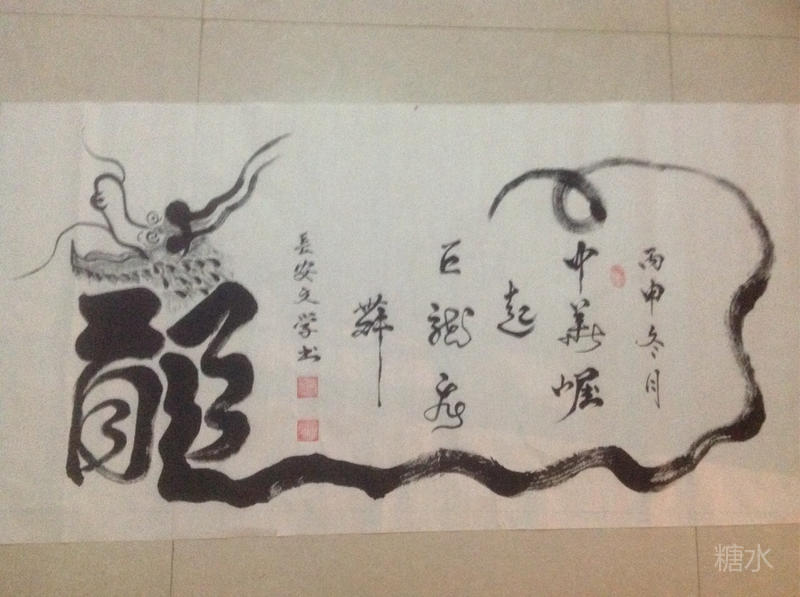 丙申冬月
中華崛
起
巨龍飛
舞
長安文学书
龍
糖水